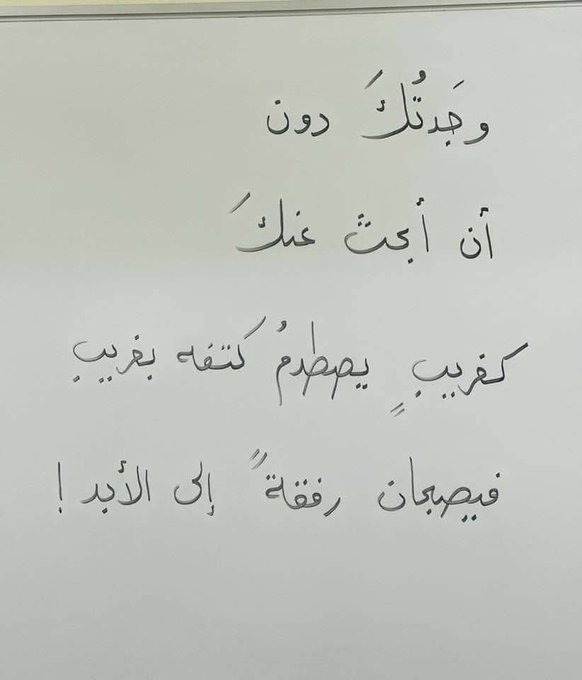 وَجَدتُكَ دون
أن أبحث عنكَ
كغريبٍ يصطدمُ كتفه بغريبٍ
فيصبحان رفقةً إلى الأبد!